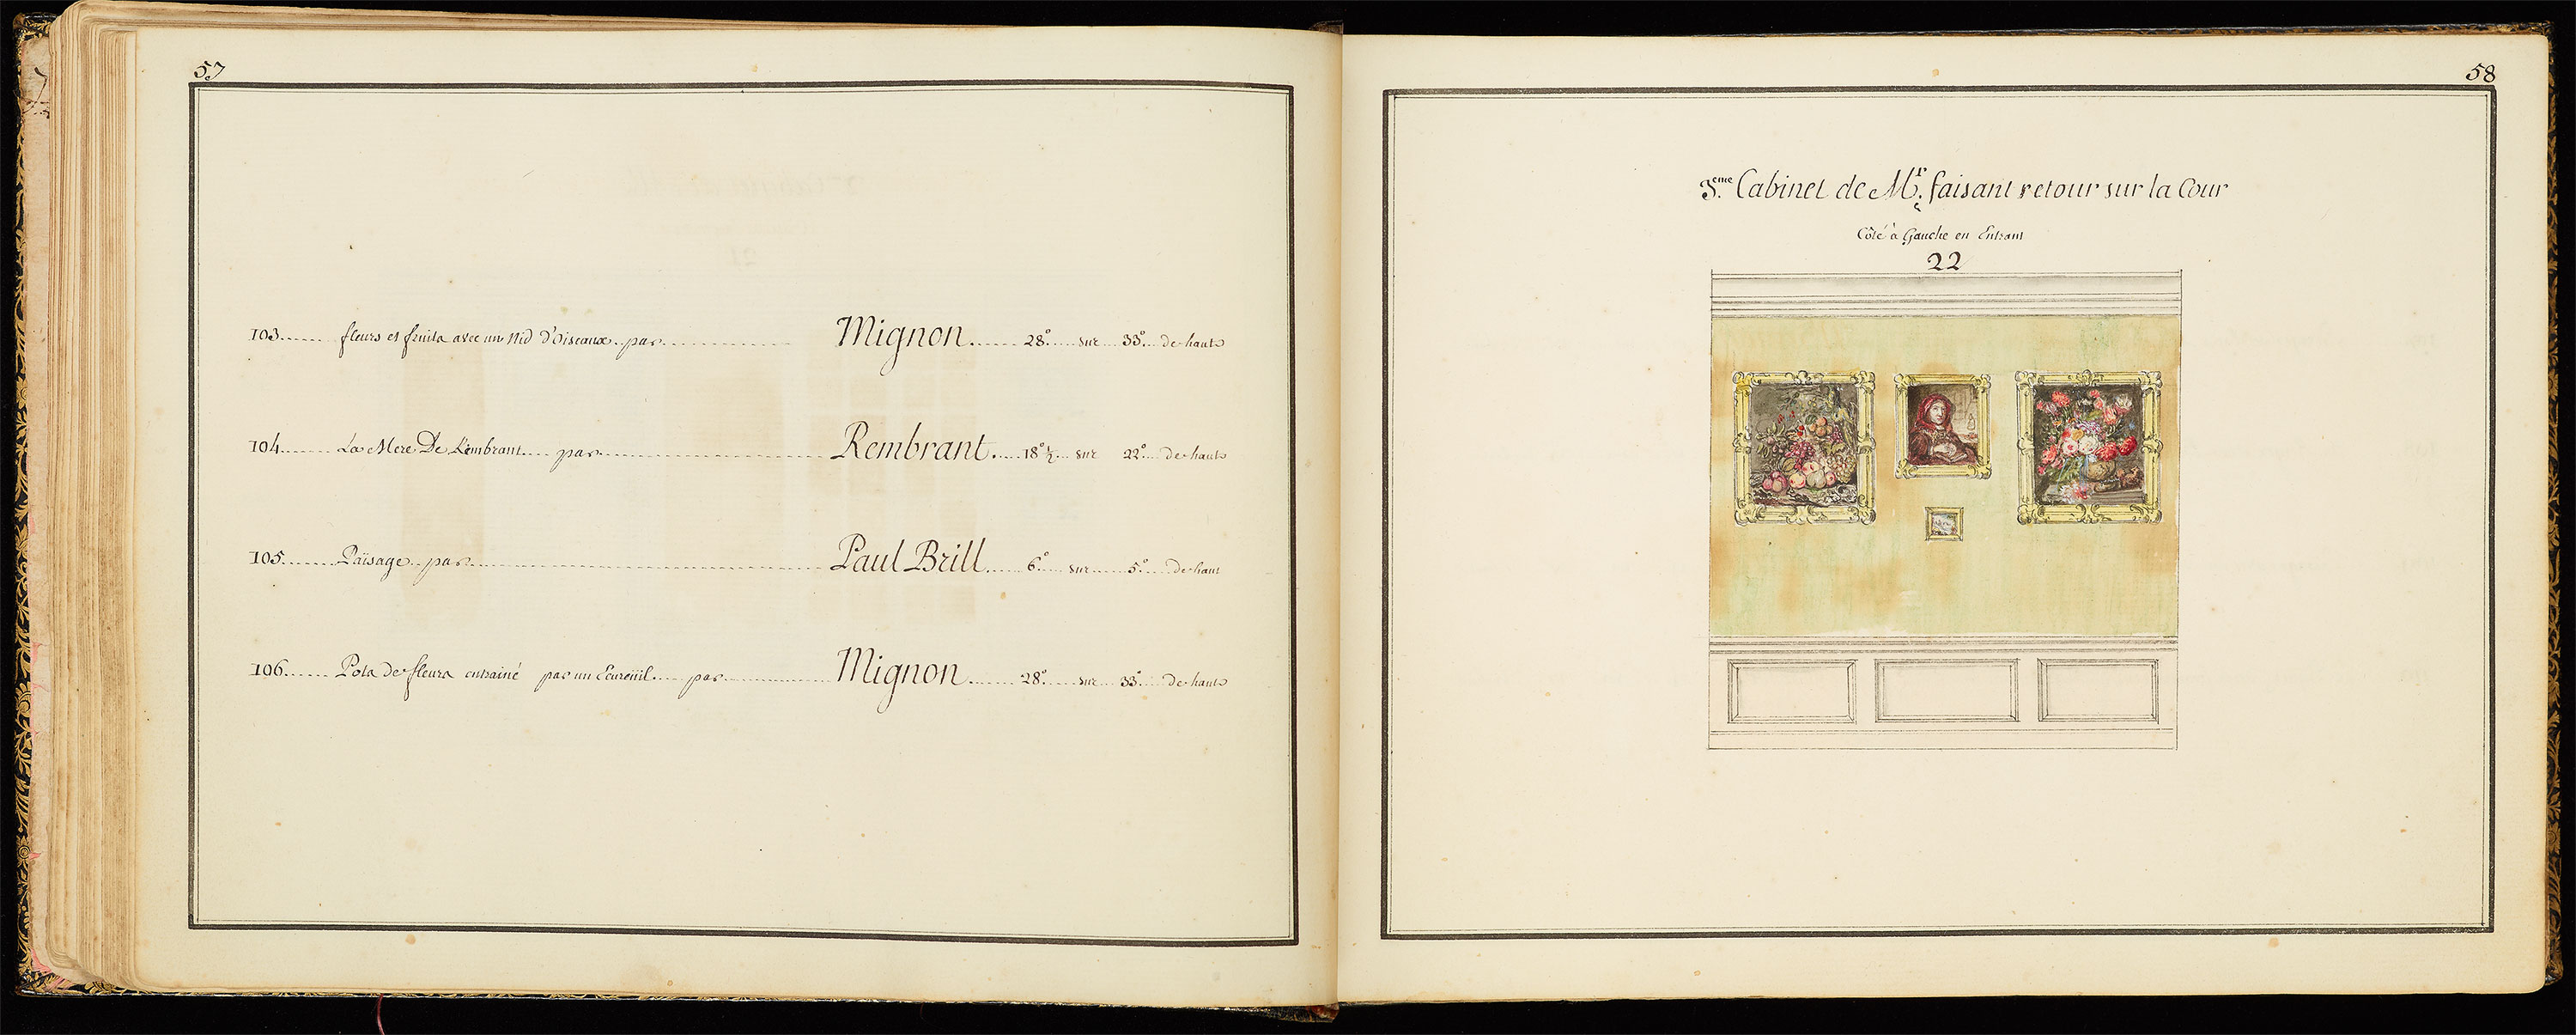 57
103...... fleurs et fruits avec un Nid d'Oiseaux. par ............ Mignon ...... 28°. .... sur .... 33°. ... de haut
104...... La Mere De Rembrant .... par ............ Rembrant .... 18° ½ ... sur 22°. ... de haut
105...... Païsage .. par ............ Paul Brill .... 6°. ... sur ..... 5°. ... De haut
106...... Pots de fleurs entrainé par un Ecureüil .... par ............ Mignon ...... 28°. .... sur ... 33°. ... de haut
58
3.eme Cabinet de M.r faisant retour sur la Cour
Côté à Gauche en Entrant
22